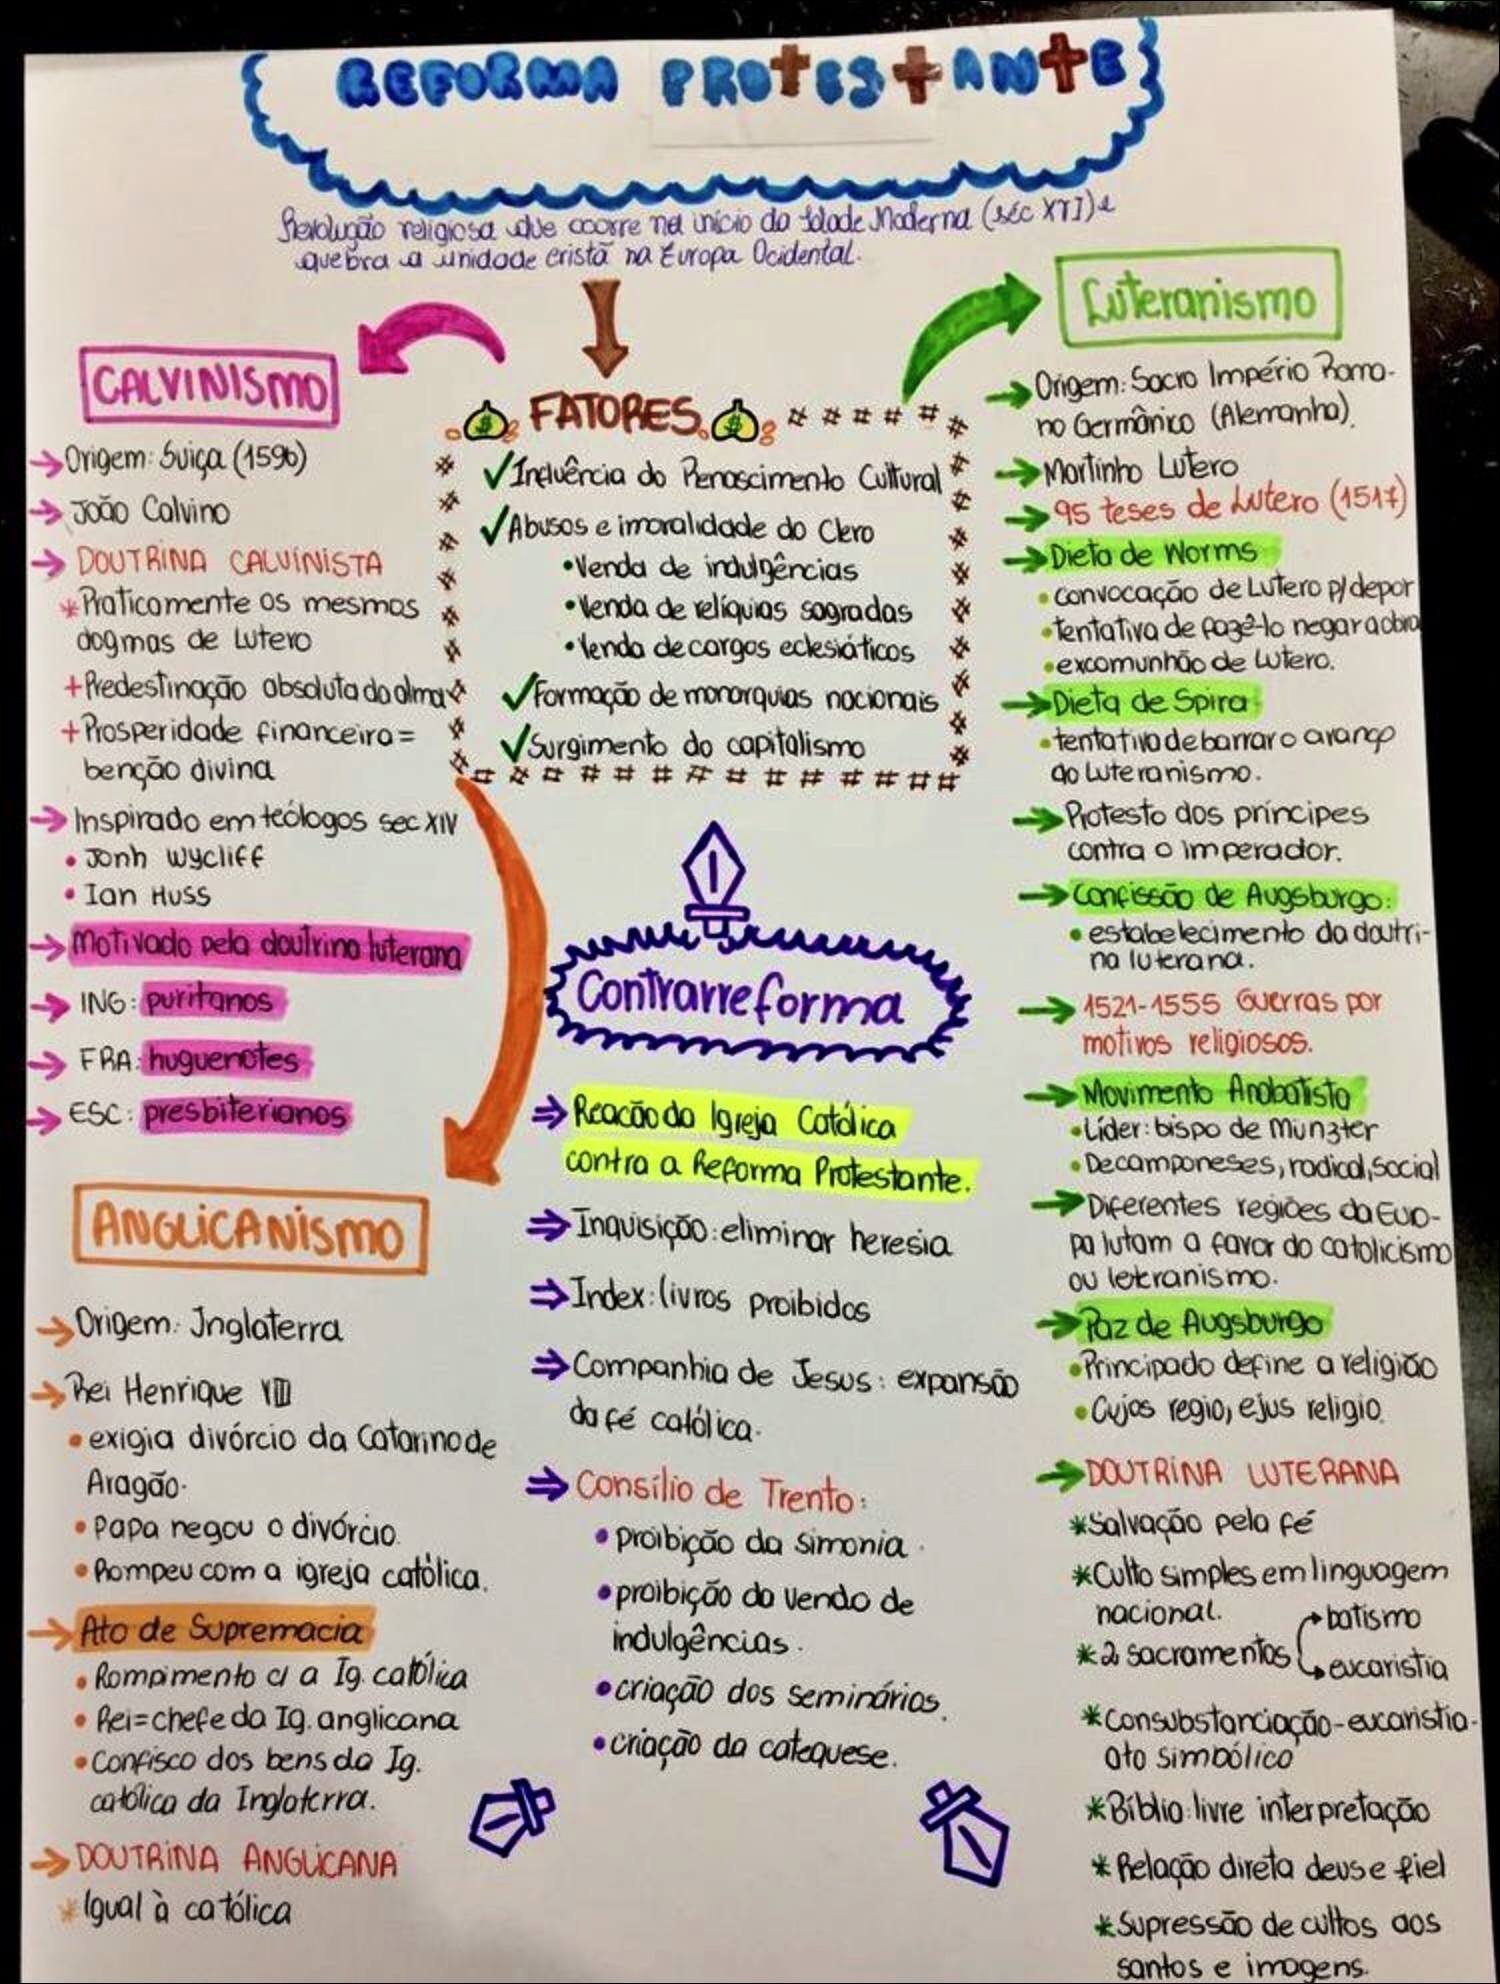 REFORMA PROTESTANTE
Revolução religiosa que ocorre no início da Idade Moderna (séc XVI) e
quebra a unidade cristã na Europa Ocidental.
CALVINISMO
Origem: Suiça (1596)
João Calvino
DOUTRINA CALVINISTA
*Praticamente os mesmos
dogmas de Lutero
+Predestinação absoluta do alma
+Prosperidade financeira=
benção divina
Inspirado em teólogos sec XIV
• Jonh Wycliff
• Ian Huss
Motivado pela doutrina luterana
ING: puritanos
FRA: huguenotes
ESC: presbiterianos
ANGLICANISMO
Origem: Inglaterra
Rei Henrique VIII
• exigia divórcio da Catarina de
Aragão.
• Papa negou o divórcio.
• Rompeu com a igreja católica.
Ato de Supremacia
• Rompimento c/ a Ig. católica
• Rei=chefe da Ig. anglicana
• Confisco dos bens da Ig.
católica da Inglaterra.
DOUTRINA ANGLICANA
*Igual à católica
$ FATORES $
✓Influência do Renascimento Cultural
✓Abusos e imoralidade do Clero
•Venda de indulgências
•Venda de relíquias sagradas
•Venda de cargos eclesiáticos
✓Formação de monarquias nacionais
✓Surgimento do capitalismo
Contrarreforma
⇒Reacão da Igreja Católica
contra a Reforma Protestante.
⇒Inquisição: eliminar heresia
⇒Index: livros proibidos
⇒Companhia de Jesus: expansão
da fé católica.
⇒Consílio de Trento:
•proibição da simonia.
•proibição da venda de
indulgências.
•criação dos seminários.
•criação da catequese.
Luteranismo
Origem: Sacro Império Roma-
no Germânico (Alemanha).
Martinho Lutero
95 teses de Lutero (1517)
Dieta de Worms
•convocação de Lutero p/ depor
•tentativa de fazê-lo negar a obra
•excomunhão de Lutero.
Dieta de Spira
•tentativa de barrar o avanço
do Luteranismo.
Protesto dos príncipes
contra o imperador.
Confissão de Augsburgo:
•estabelecimento da doutri-
na luterana.
1521-1555 Guerras por
motivos religiosos.
Movimento Anabatista
•Líder: bispo de Munzter
•De camponeses, radical, social
Diferentes regiões da Euro-
pa lutam a favor do catolicismo
ou leteranismo.
Paz de Augsburgo
•Principado define a religião
•Cujos regio, ejus religio.
DOUTRINA LUTERANA
*Salvação pela fé
*Culto simples em linguagem
nacional.
*2 sacramentos
batismo
eucaristia
*Consubstanciação-eucaristia-
ato simbólico
*Bíblia: livre interpretação
*Relação direta deus e fiel
*Supressão de cultos aos
santos e imagens.